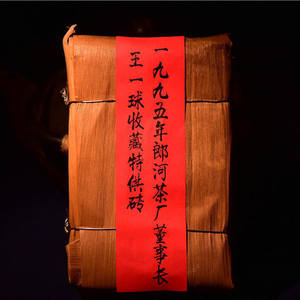 一九九五年郎河茶厂董事长
王一球收藏特供砖